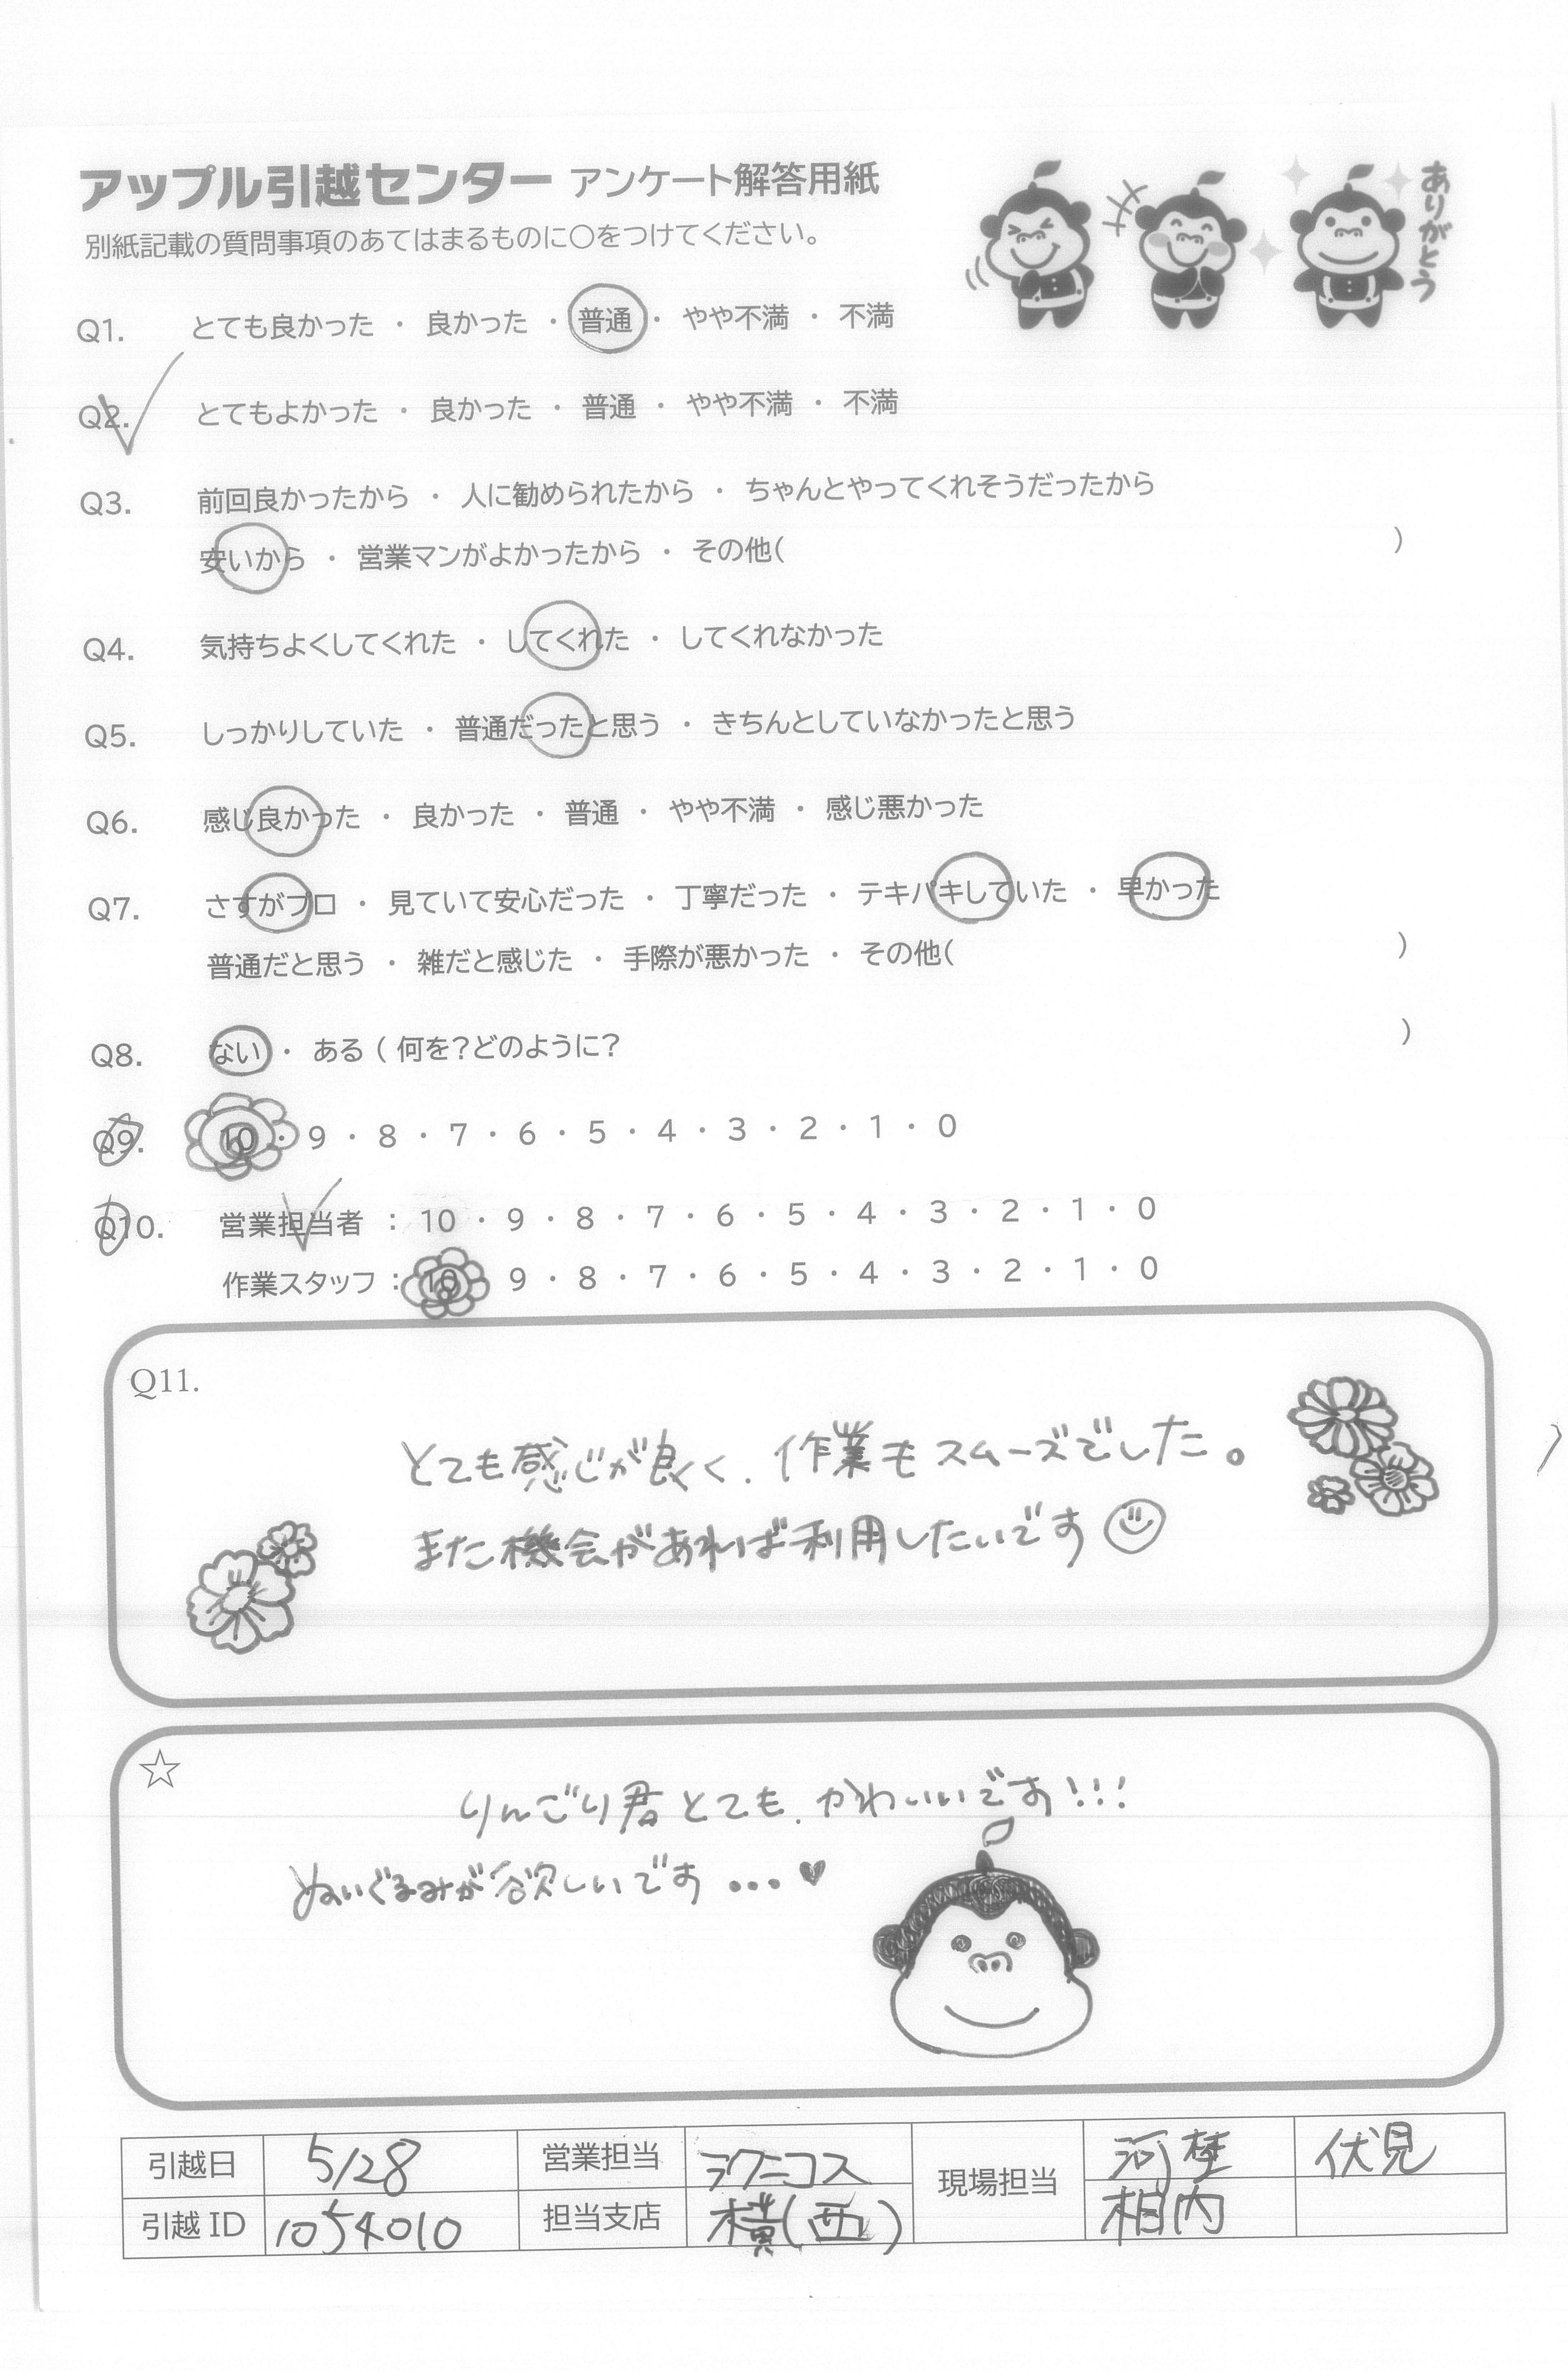 アップル引越センター アンケート解答用紙
ありがとう
別紙記載の質問事項のあてはまるものに○をつけてください。
Q1. とても良かった ・ 良かった ・ 普通 ・ やや不満 ・ 不満
Q2. とてもよかった ・ 良かった ・ 普通 ・ やや不満 ・ 不満
Q3. 前回良かったから ・ 人に勧められたから ・ ちゃんとやってくれそうだったから
安いから ・ 営業マンがよかったから ・ その他( )
Q4. 気持ちよくしてくれた ・ してくれた ・ してくれなかった
Q5. しっかりしていた ・ 普通だったと思う ・ きちんとしていなかったと思う
Q6. 感じ良かった ・ 良かった ・ 普通 ・ やや不満 ・ 感じ悪かった
Q7. さすがプロ ・ 見ていて安心だった ・ 丁寧だった ・ テキパキしていた ・ 早かった
普通だと思う ・ 雑だと感じた ・ 手際が悪かった ・ その他( )
Q8. ない ・ ある ( 何を?どのように? )
Q9. 10 ・ 9 ・ 8 ・ 7 ・ 6 ・ 5 ・ 4 ・ 3 ・ 2 ・ 1 ・ 0
Q10. 営業担当者 : 10 ・ 9 ・ 8 ・ 7 ・ 6 ・ 5 ・ 4 ・ 3 ・ 2 ・ 1 ・ 0
作業スタッフ : 10 ・ 9 ・ 8 ・ 7 ・ 6 ・ 5 ・ 4 ・ 3 ・ 2 ・ 1 ・ 0
Q11.
とても感じが良く、作業もスムーズでした。
また機会があれば利用したいです
☆
りんごり君とても、かわいいです!!!
ぬいぐるみが欲しいです...♥
引越日 5/28 営業担当 現場担当 伏見
引越 ID 1054010 担当支店 横(西) 相内